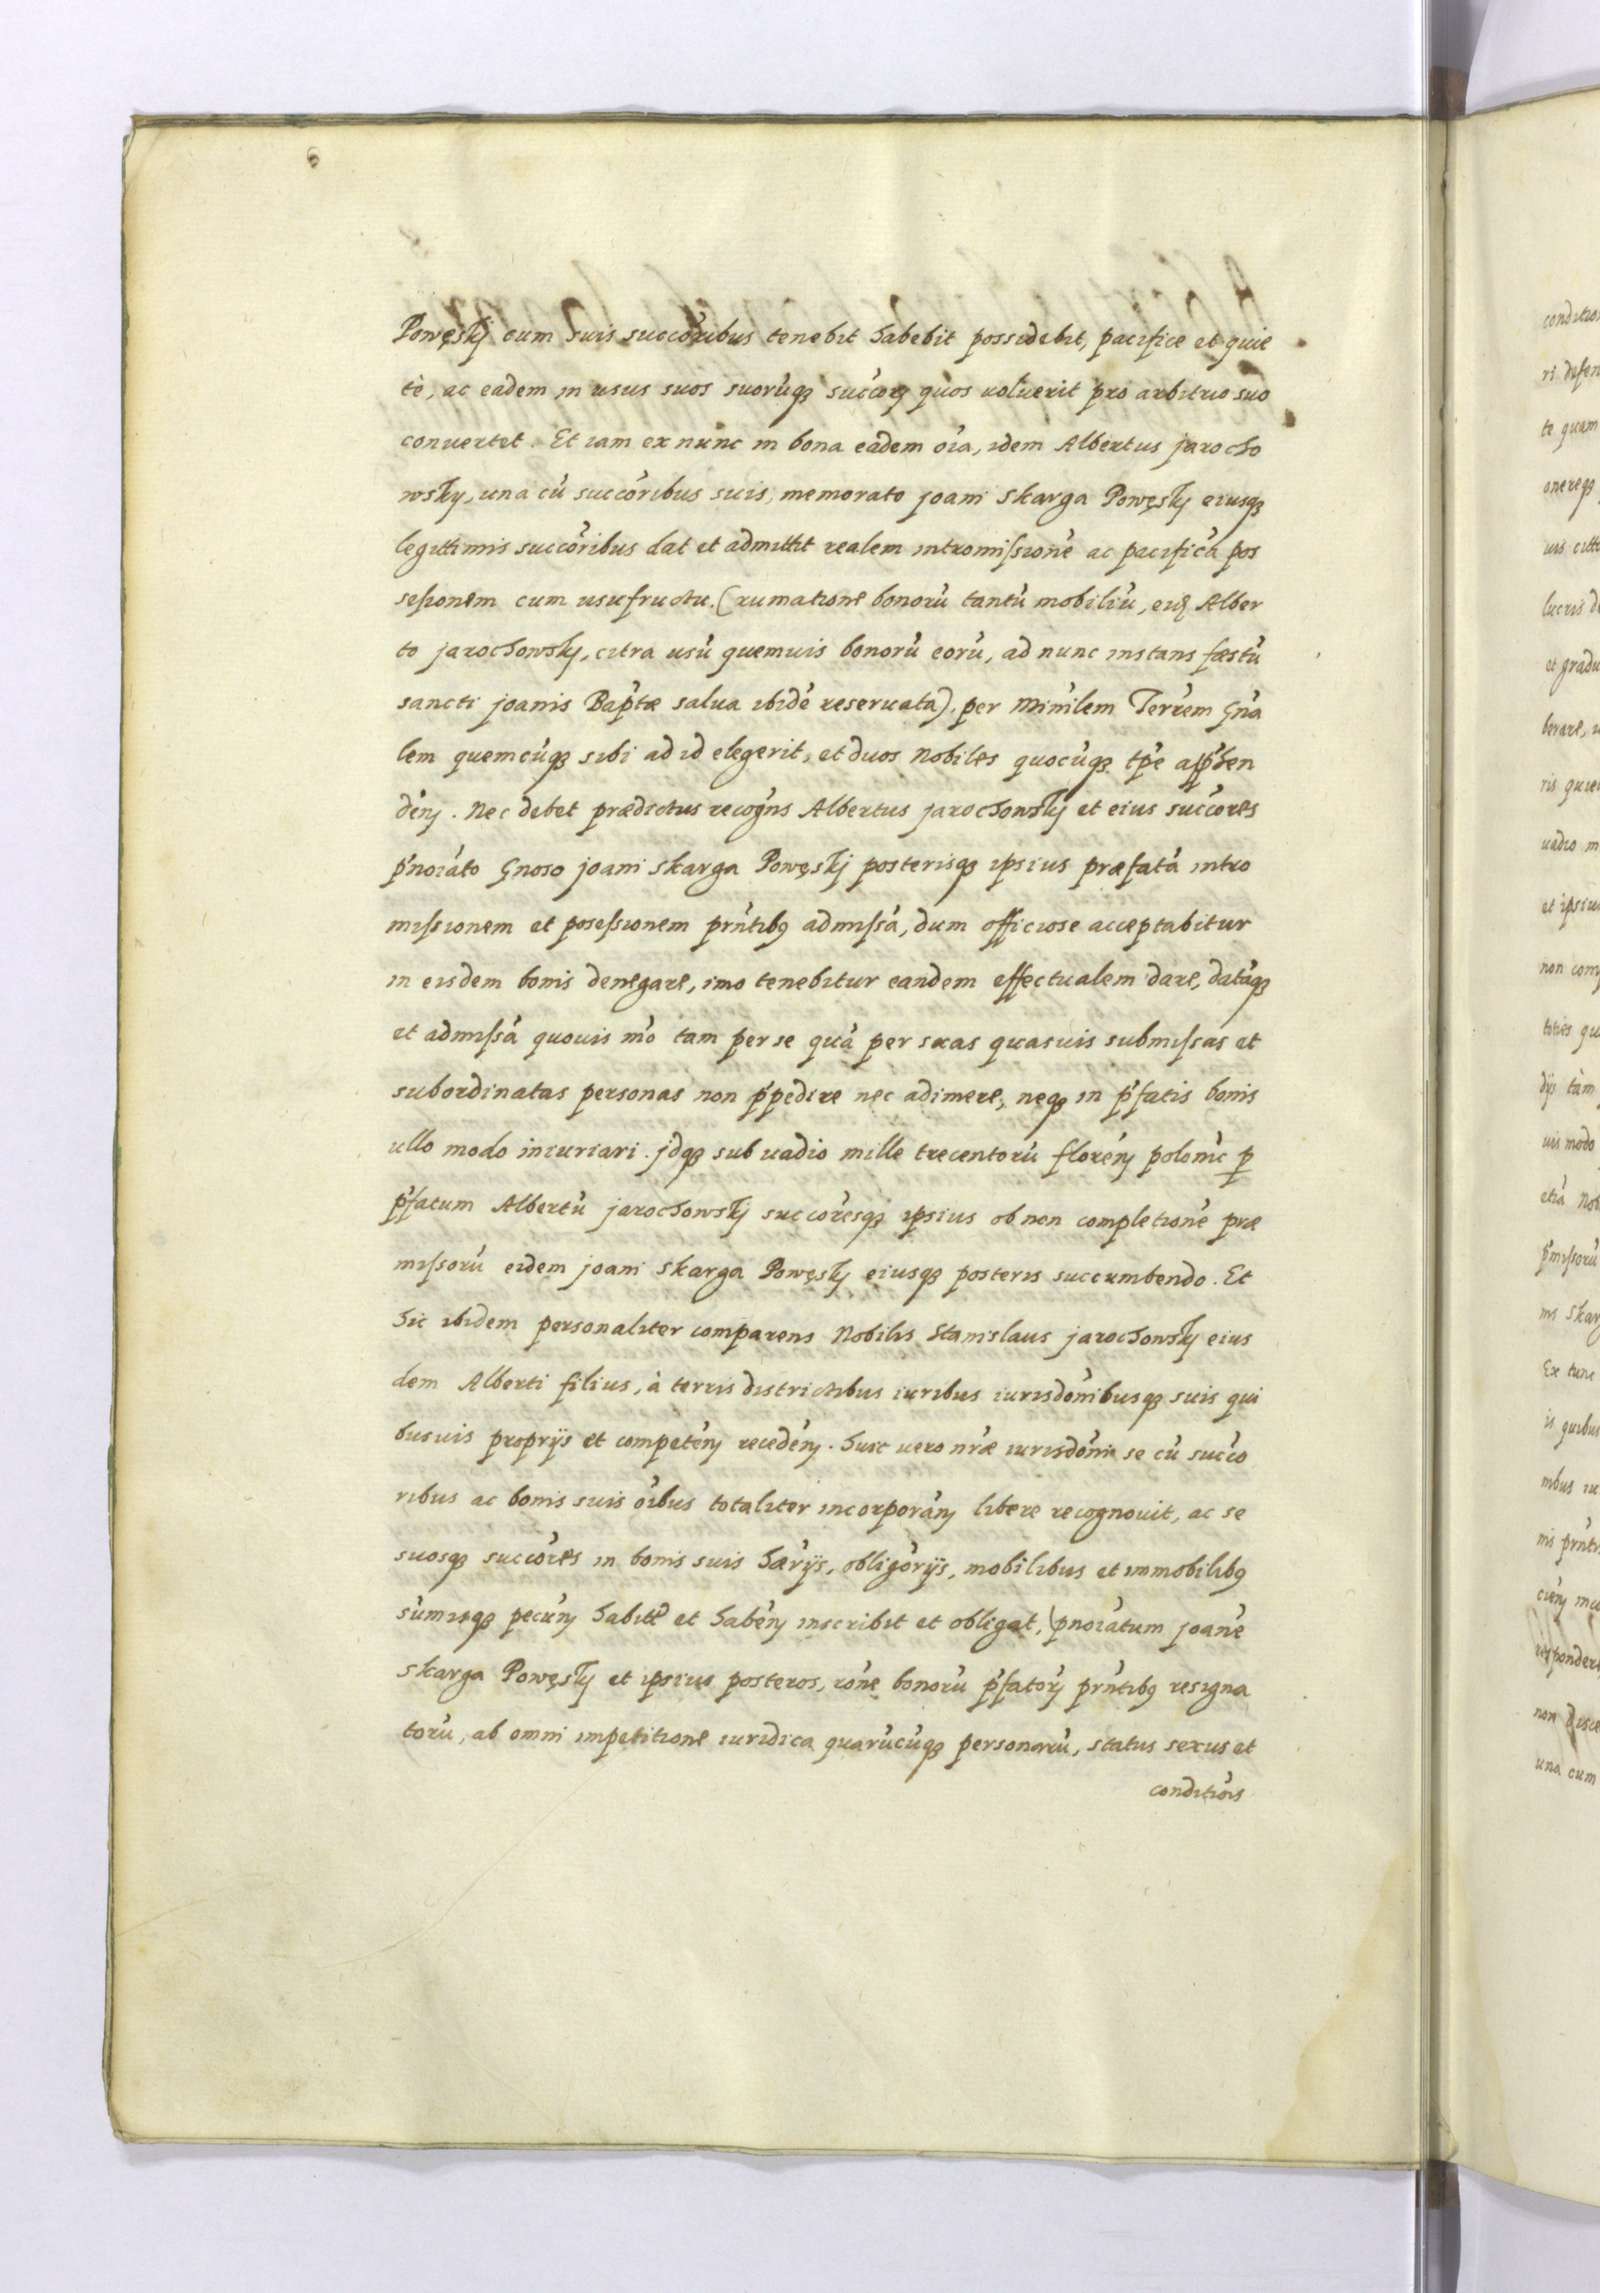 6
Powęskj cum suis succóribus tenebit habebit possidebit, pacifice et quie
tè, ac eadem in usus suos suorúqꝫ succoꝝ quos voluerit pro arbitrio suo
convertet. Et iam ex nunc in bona eadem oía, idem Albertus jarocho
wsky, una cú succóribus suis, memorato joani skarga Powęskj eiusqꝫ
legittimis succóribus dat et admittit realem intromissioné ac pacificá pos
sessionem cum usufructu. (rumatione bonorú tantú mobiliú, eiꝫ Alber
to jarochowskj, citra usú quemvis bonorú eorú, ad nunc instans fæstú
sancti joanis Baptæ salva ibidé reservata), per Minílem Terrem Gńa
lem quemcúqꝫ sibi ad id elegerit, et duos Nobiles quocúqꝫ tṕe appꝛhen
déń. Nec debet prædictus recogńs Albertus jarochowskj et eius succóres
ṕnoiáto Gnoso joani skarga Powęskj posterisqꝫ ipsius præfatá intro
missionem et posessionem prńtibꝰ admissá, dum officiose acceptabitur
in eisdem bonis denegare, imo tenebitur eandem effectualem dare, datáqꝫ
et admissá quovis mó tam per se quá per suas quasvis submissas et
subordinatas personas non ṕpedire nec adimere, neqꝫ in ṕfatis bonis
ullo modo iniuriari. jdqꝫ sub vadio mille trecentorú florén polonić ꝑ
ṕfatum Albertú jarochowskj succóresqꝫ ipsius ob non completioné præ
missorú eidem joani skarga Powęskj eiusqꝫ posteris succumbendo. Et
hic ibidem personaliter comparens Nobilis Stanislaus jarochowskj eius
dem Alberti filius, à terris districtibus iuribus iurisdónibusqꝫ suis qui
busvis proprijs et competéń recedéń. huic vero nræ iurisdóni se cú succó
ribus ac bonis suis óibus totaliter incorporáń libere recognovit, ac se
suosqꝫ succóres in bonis suis hærijs, obligórijs, mobilibus et immobilibꝰ
súmisqꝫ pecúń habitt et habéń inscribit et obligat, ṕnoiátum joané
skarga Powęskj et ipsius posteros, róne bonorú ṕfatoꝝ prńtibꝰ resigna
torú, ab omni impetitione iuridica quarúcúqꝫ personarú, status sexus et
conditiois